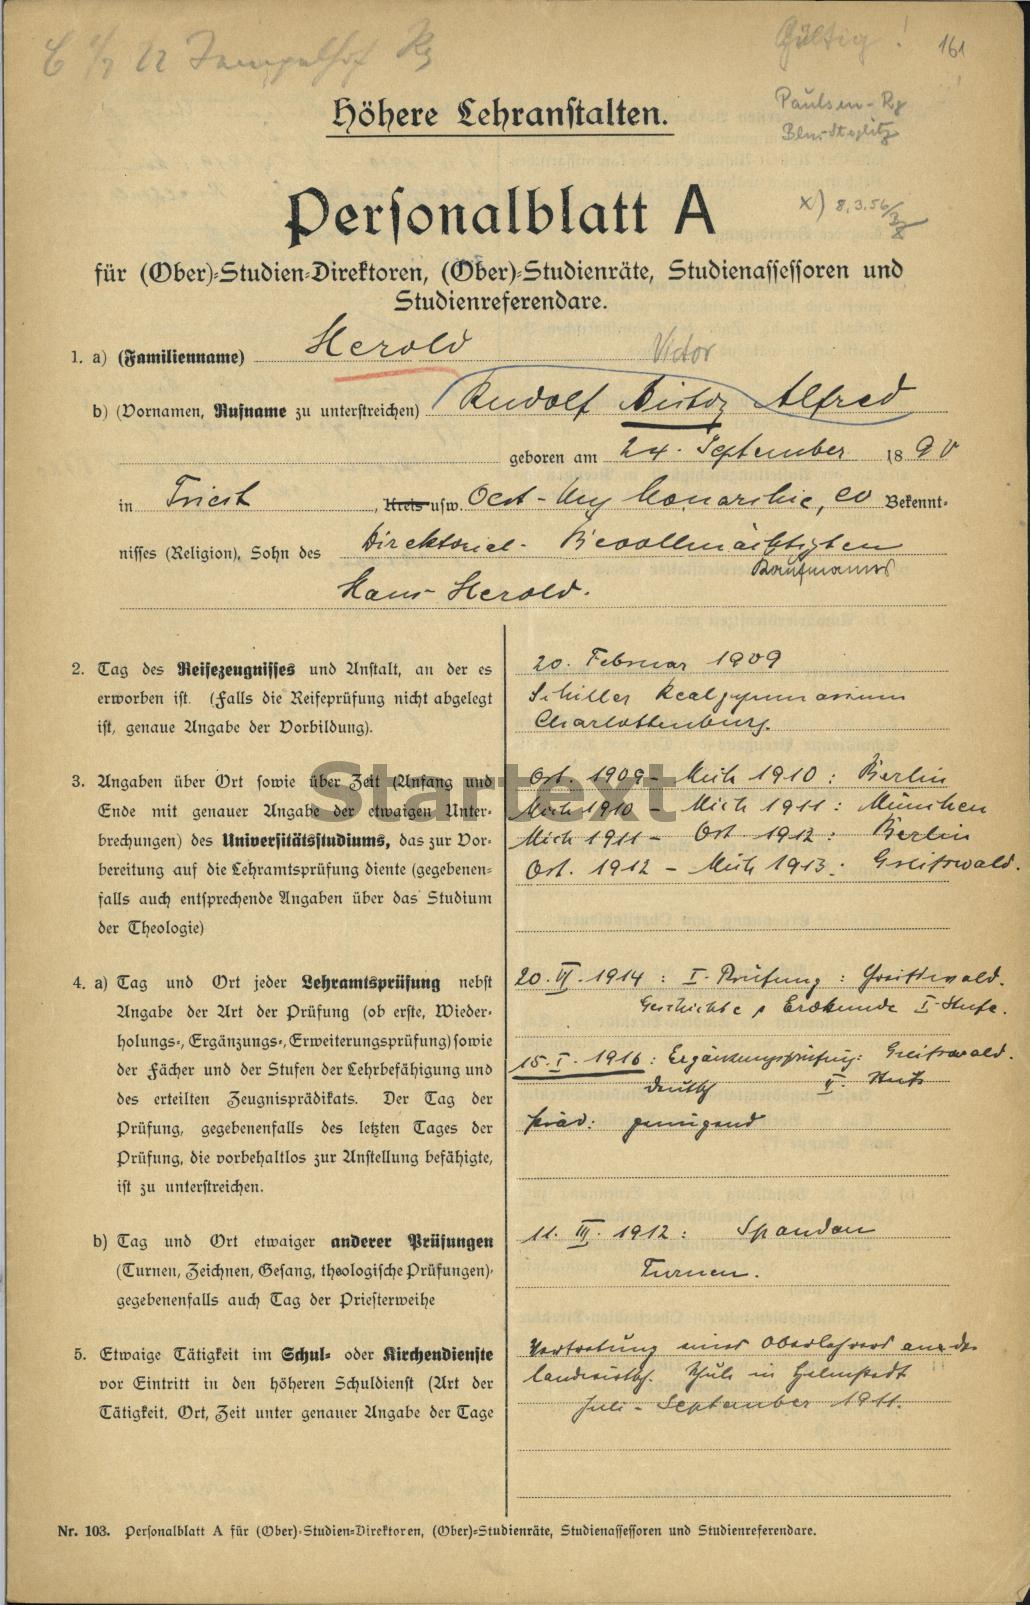 Gültig !
161
Tempelhof Rg
Höhere Lehranstalten.
Paulsen-Rg
Bln.-Steglitz
Personalblatt A
x) 8.3.56
für (Ober)-Studien-Direktoren, (Ober)-Studienräte, Studienassessoren und
Studienreferendare.
1. a) (Familienname) Herold
Victor
b) (Vornamen, Rufname zu unterstreichen) Rudolf Victor Alfred
geboren am 24. September 1890
in Triest, Kreis usw. Oest-Ung Monarchie, ev Bekennt-
nisses (Religion), Sohn des Direktorial-Bevollmächtigten
Kaufmanns
Hans Herold.
2. Tag des Reifezeugnisses und Anstalt, an der es
erworben ist. (Falls die Reifeprüfung nicht abgelegt
ist, genaue Angabe der Vorbildung).
20. Februar 1909
Schiller Realgymnasium
Charlottenburg.
3. Angaben über Ort sowie über Zeit (Anfang und
Ende mit genauer Angabe der etwaigen Unter-
brechungen) des Universitätsstudiums, das zur Vor-
bereitung auf die Lehramtsprüfung diente (gegebenen-
falls auch entsprechende Angaben über das Studium
der Theologie)
Ost. 1909 - Mich 1910 : Berlin
Mich 1910 - Mich 1911 : München
Mich 1911 - Ost 1912 : Berlin
Ost. 1912 - Mich 1913 : Greifswald.
Startext
4. a) Tag und Ort jeder Lehramtsprüfung nebst
Angabe der Art der Prüfung (ob erste, Wieder-
holungs-, Ergänzungs-, Erweiterungsprüfung) sowie
der Fächer und der Stufen der Lehrbefähigung und
des erteilten Zeugnisprädikats. Der Tag der
Prüfung, gegebenenfalls des letzten Tages der
Prüfung, die vorbehaltlos zur Anstellung befähigte,
ist zu unterstreichen.
20. VI. 1914 : I. Prüfung : Greifswald.
Geschichte, Erdkunde I. Stufe.
15. I. 1916 : Ergänzungsprüfung: Greifswald.
Deutsch II. Stufe
Präd: genügend
b) Tag und Ort etwaiger anderer Prüfungen
(Turnen, Zeichnen, Gesang, theologische Prüfungen),
gegebenenfalls auch Tag der Priesterweihe
11. III. 1912 : Spandau
Turnen.
5. Etwaige Tätigkeit im Schul- oder Kirchendienste
vor Eintritt in den höheren Schuldienst (Art der
Tätigkeit, Ort, Zeit unter genauer Angabe der Tage
Vertretung eines Oberlehrers an der
landwirtsch. Schule in Helmstedt
Juli - September 1911.
Nr. 103. Personalblatt A für (Ober)-Studien-Direktoren, (Ober)-Studienräte, Studienassessoren und Studienreferendare.